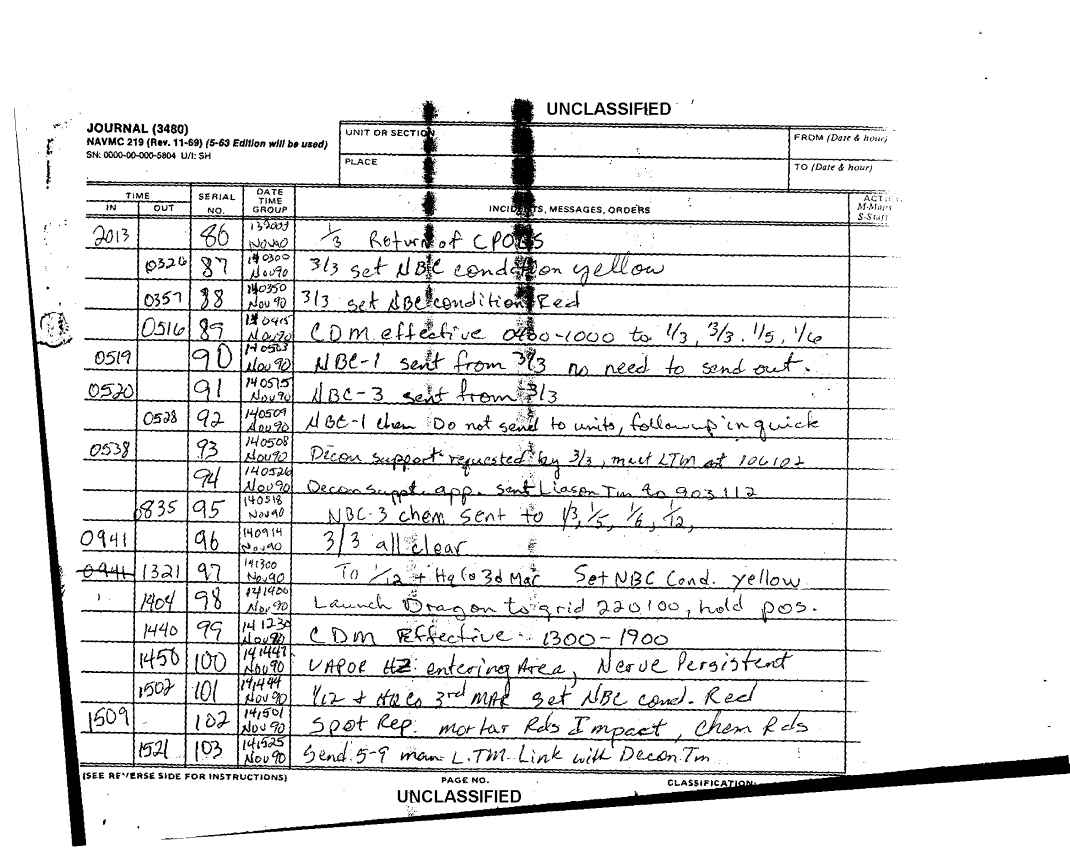 UNCLASSIFIED
JOURNAL (3480)
NAVMC 219 (Rev. 11-69) (5-63 Edition will be used)
SN: 0000-00-000-5804 U/I: SH
UNIT OR SECTION
FROM (Date & hour)
PLACE
TO (Date & hour)
TIME
IN OUT
SERIAL NO.
DATE TIME GROUP
INCIDENTS, MESSAGES, ORDERS
M-Maps
S-Staff
2013 86 132009 Nov 90 1/3 Return of
0326 87 140300 Nov 90 3/3 set NBC condition yellow
0357 88 140350 Nov 90 3/3 set NBC condition Red
0516 89 140415 Nov 90 CDM effective 0400-1000 to 1/3, 3/3, 1/5, 1/6
0519 90 140503 Nov 90 NBC-1 sent from 3/3 no need to send out.
0520 91 140515 Nov 90 NBC-3 sent from 3/3
0528 92 140509 Nov 90 NBC-1 chem Do not send to units, followup in quick
0538 93 140508 Nov 90 Decon support requested by 3/3, meet LTM at 106102
94 140526 Nov 90 Decon suppt. app. sent Liason Tm to 903112
0835 95 140518 Nov 90 NBC-3 chem sent to 1/3, 1/5, 1/6, 1/12,
0941 96 140914 Nov 90 3/3 all clear
0941 1321 97 141300 Nov 90 To 1/12 + Hq Co 3d Mar Set NBC Cond. yellow
1404 98 141400 Nov 90 Launch Dragon to grid 220100, hold pos.
1440 99 141230 Nov 90 CDM Effective 1300-1900
1450 100 141447 Nov 90 VAPOR HZ entering Area, Nerve Persistent
1502 101 141444 Nov 90 1/12 + HQ Co 3rd MAR set NBC cond. Red
1509 102 141501 Nov 90 Spot Rep. mortar Rds Impact, Chem Rds
1521 103 141525 Nov 90 Send 5-9 man L.TM Link with Decon Tm
(SEE REVERSE SIDE FOR INSTRUCTIONS)
PAGE NO.
CLASSIFICATION:
UNCLASSIFIED